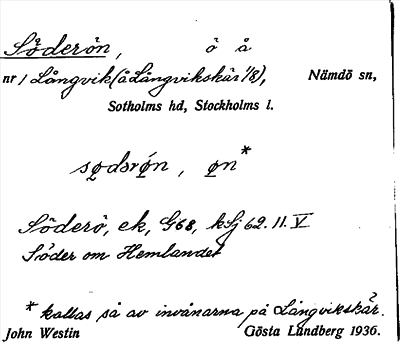 Söderön, ö å
nr 1 Långvik (å Långvikskär 1/8), Nämdö sn,
Sotholms hd, Stockholms l.
sødərøn, øn*
Söderö, ek, G68, kSj 62. 11. V
Söder om Hemlandet
* kallas så av invånarna på Långvikskär.
John Westin Gösta Lundberg 1936.